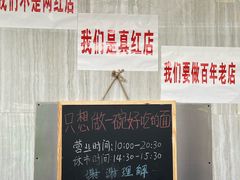 们不是网红店
我们是真红店
我们要做百年老店
只想做一碗好吃的面
营业时间：10:00-20:30
休市时间：14:30-15:30
谢谢理解